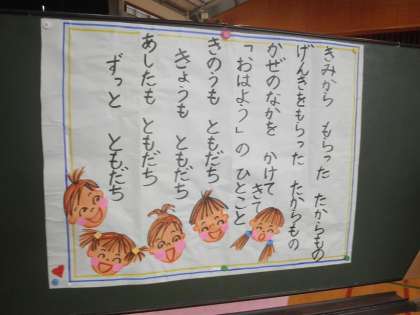 きみから もらった たからもの
げんきをもらった たからもの
かぜのなかを かけてきて
「おはよう」の ひとこと
きのうも ともだち
きょうも ともだち
あしたも ともだち
ずっと ともだち